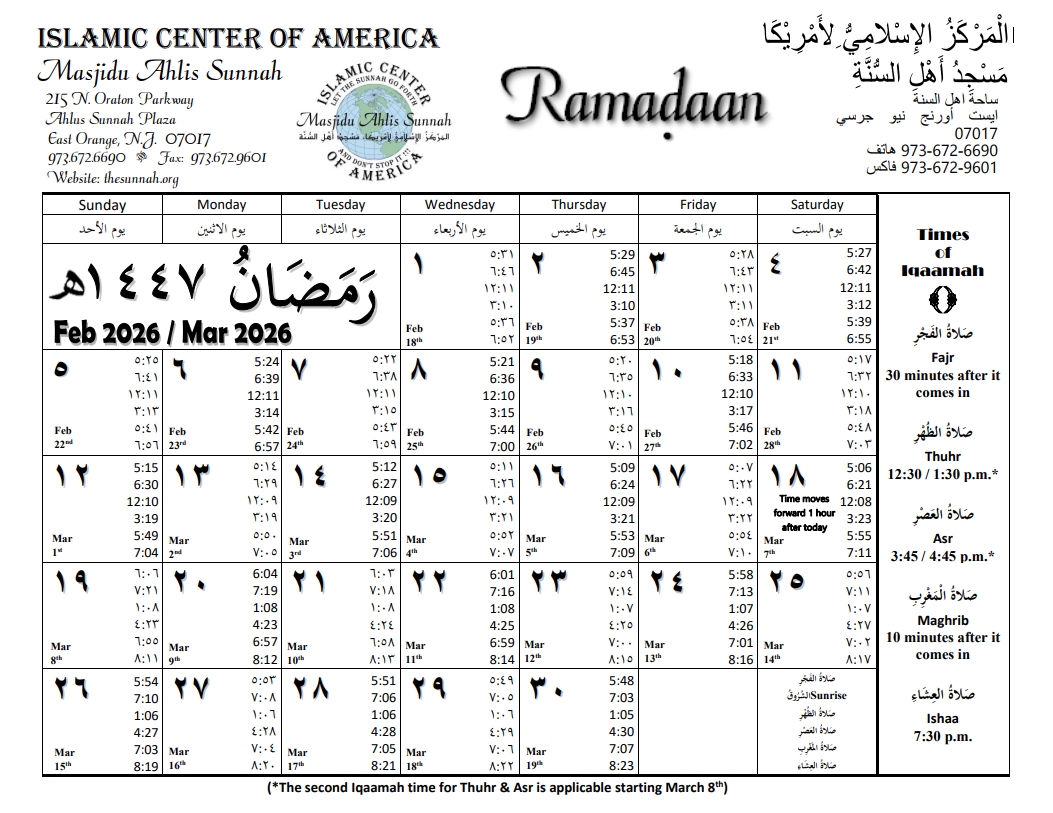 ISLAMIC CENTER OF AMERICA
Masjidu Ahlis Sunnah
215 N. Oraton Parkway
Ahlus Sunnah Plaza
East Orange, N.J. 07017
973.672.6690 Fax: 973.672.9601
Website: thesunnah.org
ISLAMIC CENTER
LET THE SUNNAH GO FORTH
Masjidu Ahlis Sunnah
المَرْكَزُ الإِسْلَامِيُّ لِأَمْرِيْكَا، مَسْجِدُ أَهْلِ السُّنَّة
AND DON'T STOP IT !!!
OF AMERICA
Ramadaan
الْمَرْكَزُ الإِسْلامِيُّ لِأَمْرِيْكَا
مَسْجِدُ أَهْلِ السُّنَّةِ
ساحة اهل السنة
ايست أورنج نيو جرسي
07017
973-672-6690 هاتف
973-672-9601 فاكس
Sunday Monday Tuesday Wednesday Thursday Friday Saturday
يوم الأحد يوم الاثنين يوم الثلاثاء يوم الأربعاء يوم الخميس يوم الجمعة يوم السبت
رَمَضَانُ ١٤٤٧هـ
Feb 2026 / Mar 2026
١ ٥:٣١
٦:٤٦
١٢:١١
٣:١٠
Feb ٥:٣٦
18th ٦:٥٢
٢ 5:29
6:45
12:11
3:10
Feb 5:37
19th 6:53
٣ ٥:٢٨
٦:٤٣
١٢:١١
٣:١١
Feb ٥:٣٨
20th ٦:٥٤
٤ 5:27
6:42
12:11
3:12
Feb 5:39
21st 6:55
٥ ٥:٢٥
٦:٤١
١٢:١١
٣:١٣
Feb ٥:٤١
22nd ٦:٥٦
٦ 5:24
6:39
12:11
3:14
Feb 5:42
23rd 6:57
٧ ٥:٢٢
٦:٣٨
١٢:١١
٣:١٥
Feb ٥:٤٣
24th ٦:٥٩
٨ 5:21
6:36
12:10
3:15
Feb 5:44
25th 7:00
٩ ٥:٢٠
٦:٣٥
١٢:١٠
٣:١٦
Feb ٥:٤٥
26th ٧:٠١
١٠ 5:18
6:33
12:10
3:17
Feb 5:46
27th 7:02
١١ ٥:١٧
٦:٣٢
١٢:١٠
٣:١٨
Feb ٥:٤٨
28th ٧:٠٣
١٢ 5:15
6:30
12:10
3:19
Mar 5:49
1st 7:04
١٣ ٥:١٤
٦:٢٩
١٢:٠٩
٣:١٩
Mar ٥:٥٠
2nd ٧:٠٥
١٤ 5:12
6:27
12:09
3:20
Mar 5:51
3rd 7:06
١٥ ٥:١١
٦:٢٦
١٢:٠٩
٣:٢١
Mar ٥:٥٢
4th ٧:٠٧
١٦ 5:09
6:24
12:09
3:21
Mar 5:53
5th 7:09
١٧ ٥:٠٧
٦:٢٢
١٢:٠٩
٣:٢٢
Mar ٥:٥٤
6th ٧:١٠
١٨ 5:06
6:21
Time moves 12:08
forward 1 hour 3:23
after today
Mar 5:55
7th 7:11
١٩ ٦:٠٦
٧:٢١
١:٠٨
٤:٢٣
Mar ٦:٥٥
8th ٨:١١
٢٠ 6:04
7:19
1:08
4:23
Mar 6:57
9th 8:12
٢١ ٦:٠٣
٧:١٨
١:٠٨
٤:٢٤
Mar ٦:٥٨
10th ٨:١٣
٢٢ 6:01
7:16
1:08
4:25
Mar 6:59
11th 8:14
٢٣ ٥:٥٩
٧:١٤
١:٠٧
٤:٢٥
Mar ٧:٠٠
12th ٨:١٥
٢٤ 5:58
7:13
1:07
4:26
Mar 7:01
13th 8:16
٢٥ ٥:٥٦
٧:١١
١:٠٧
٤:٢٧
Mar ٧:٠٢
14th ٨:١٧
٢٦ 5:54
7:10
1:06
4:27
Mar 7:03
15th 8:19
٢٧ ٥:٥٣
٧:٠٨
١:٠٦
٤:٢٨
Mar ٧:٠٤
16th ٨:٢٠
٢٨ 5:51
7:06
1:06
4:28
Mar 7:05
17th 8:21
٢٩ ٥:٤٩
٧:٠٥
١:٠٦
٤:٢٩
Mar ٧:٠٦
18th ٨:٢٢
٣٠ 5:48
7:03
1:05
4:30
Mar 7:07
19th 8:23
صَلاةُ الفَجْرِ
الشُّرُوقُ Sunrise
صَلاةُ الظُّهْرِ
صَلاةُ العَصْرِ
صَلاةُ المَغْرِبِ
صَلاةُ العِشَاءِ
Times
of
Iqaamah
صَلاةُ الفَجْرِ
Fajr
30 minutes after it
comes in
صَلاةُ الظُّهْرِ
Thuhr
12:30 / 1:30 p.m.*
صَلاةُ العَصْرِ
Asr
3:45 / 4:45 p.m.*
صَلاةُ الْمَغْرِبِ
Maghrib
10 minutes after it
comes in
صَلاةُ العِشَاءِ
Ishaa
7:30 p.m.
(*The second Iqaamah time for Thuhr & Asr is applicable starting March 8th)